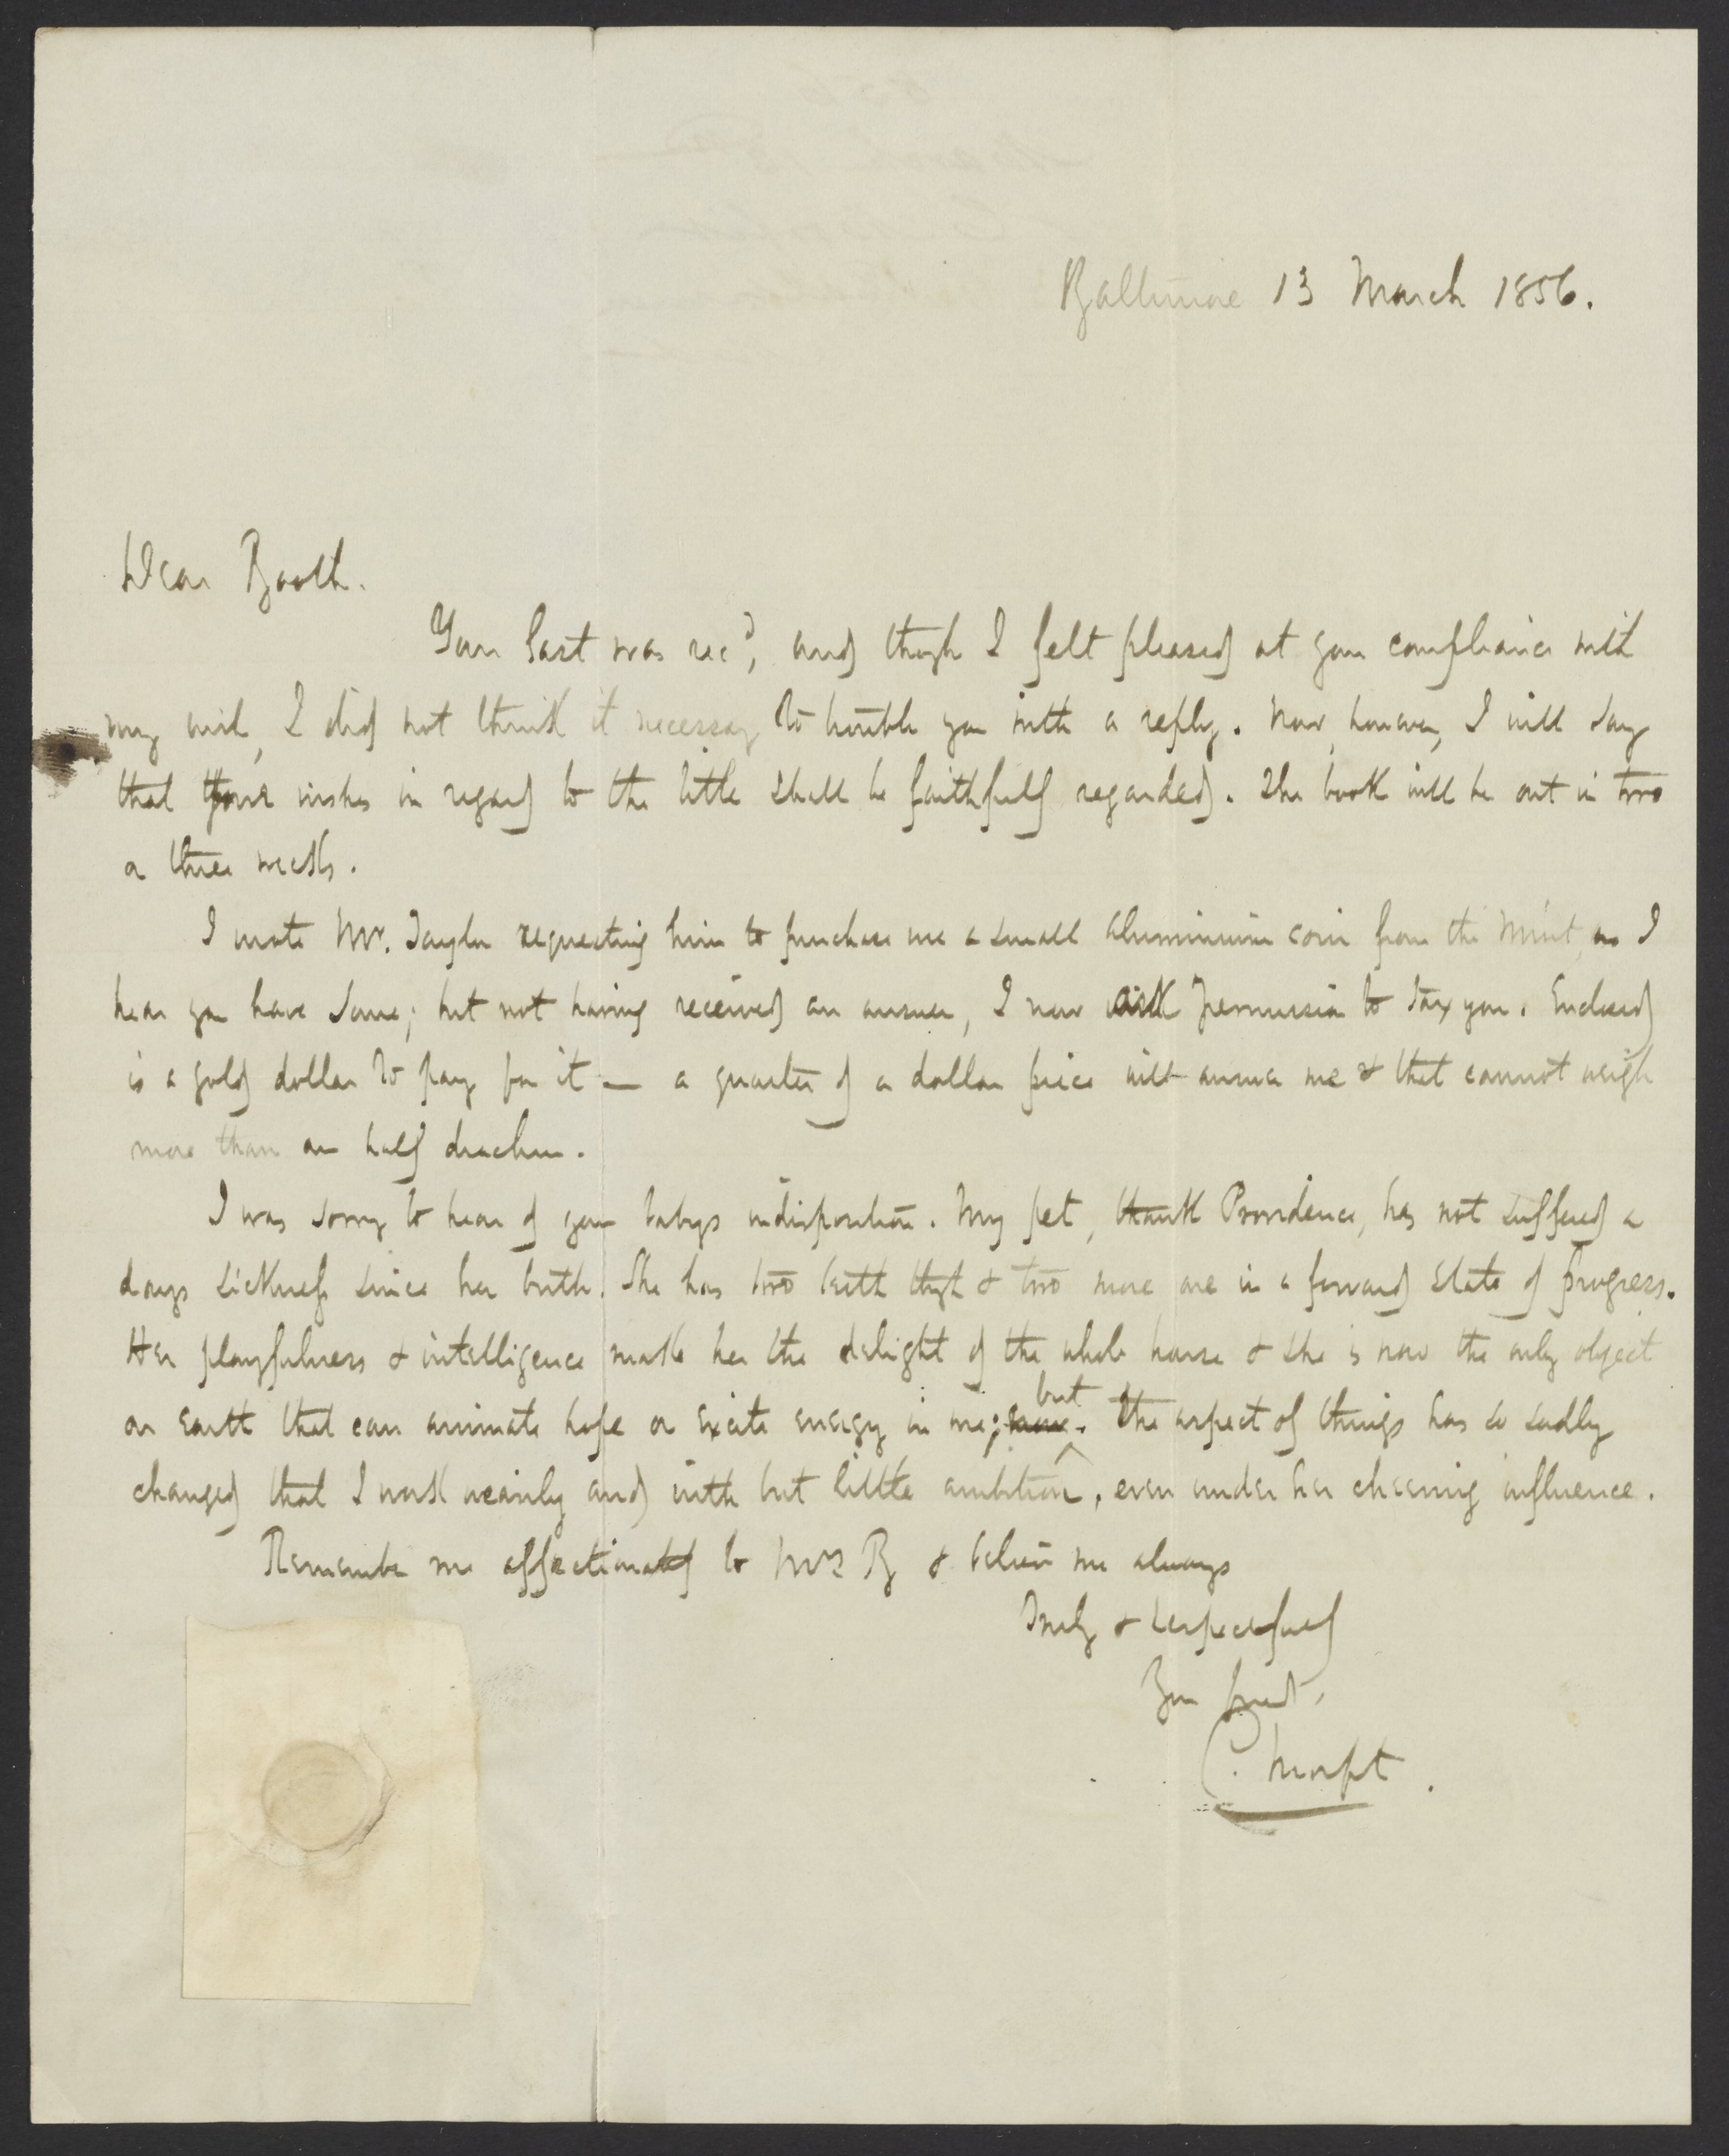 Baltimore 13 March 1856.
Dear Booth.
Your last was recd, and though I felt pleased at your compliance with
my wish, I did not think it necessary to trouble you with a reply. Now, however, I will say
that your wishes in regard to the title shall be faithfully regarded. The book will be out in two
or three weeks.
I wrote Mr. Taylor requesting him to purchase me a small aluminium coin from the Mint, as I
hear you have some; but not having received an answer, I now ask permission to tax you. Enclosed
is a gold dollar to pay for it — a quarter of a dollar piece will answer me & that cannot weigh
more than an half drachm.
I was sorry to hear of your babys indisposition. My pet, thank Providence, has not suffered a
days sickness since her birth. She has two teeth thgh & two more are in a forward state of progress.
Her playfulness & intelligence make her the delight of the whole house & she is now the only object
on earth that can animate hope or excite energy in me; but the aspect of things has so sadly
changed that I work wearily and with but little ambition, even under her cheering influence.
Remember me affectionately to Mrs B & believe me always
Truly & respectfully
Your friend,
C. Morfit.